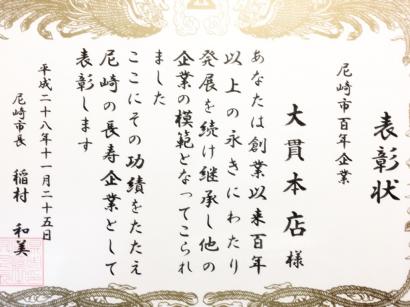 表彰状
尼崎市百年企業
大貫本店様
あなたは創業以来百年
以上の永きにわたり
発展を続け継承し他の
企業の模範となってこられ
ました
ここにその功績をたたえ
尼崎の長寿企業として
表彰します
平成二十八年十一月二十五日
尼崎市長 稲村 和美